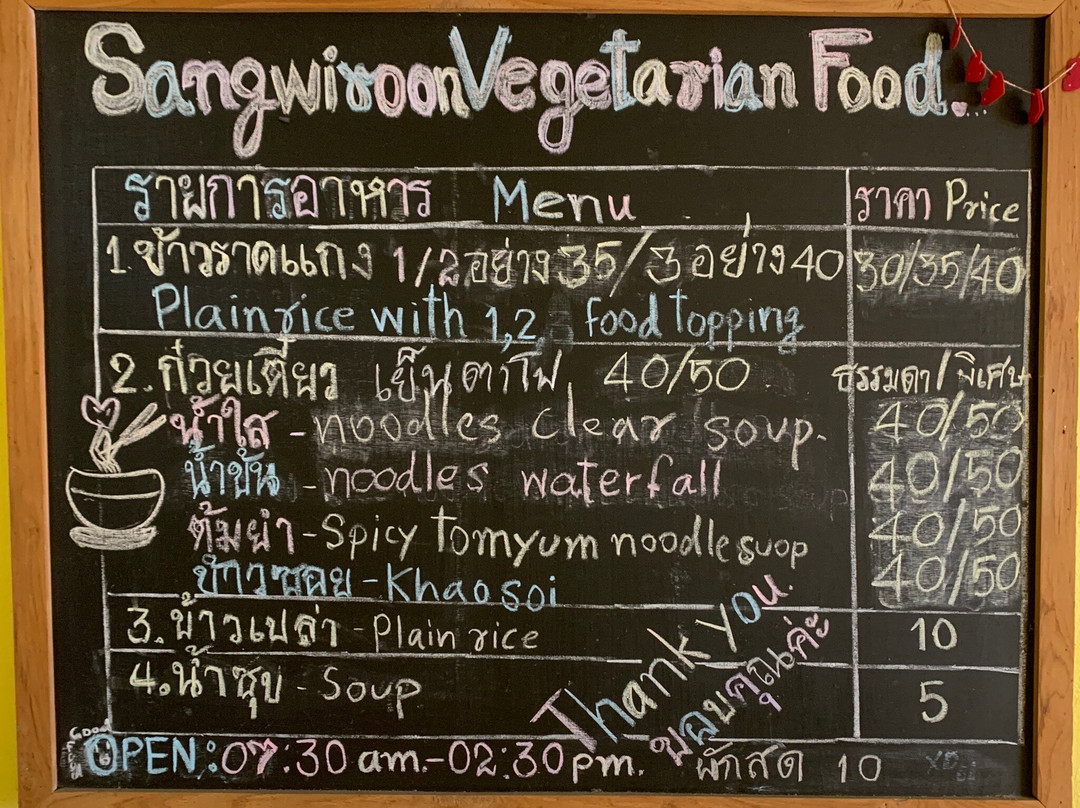 Sangwiroon Vegetarian Food...
รายการอาหาร Menu ราคา Price
1. ข้าวราดแกง 1/2 อย่าง 35/3 อย่าง 40 30/35/40
Plain rice with 1,2, food topping
2. ก๋วยเตี๋ยว เย็นตาโฟ 40/50 ธรรมดา/พิเศษ
น้ำใส - noodles clear soup. 40/50
น้ำข้น - noodles waterfall 40/50
ต้มยำ - Spicy tomyum noodle suop 40/50
ข้าวซอย - Khao soi 40/50
3. ข้าวเปล่า - Plain rice 10
4. น้ำซุป - Soup 5
Thank you.
ขอบคุณค่ะ
OPEN: 07:30 am.-02:30 pm. ผักสด 10